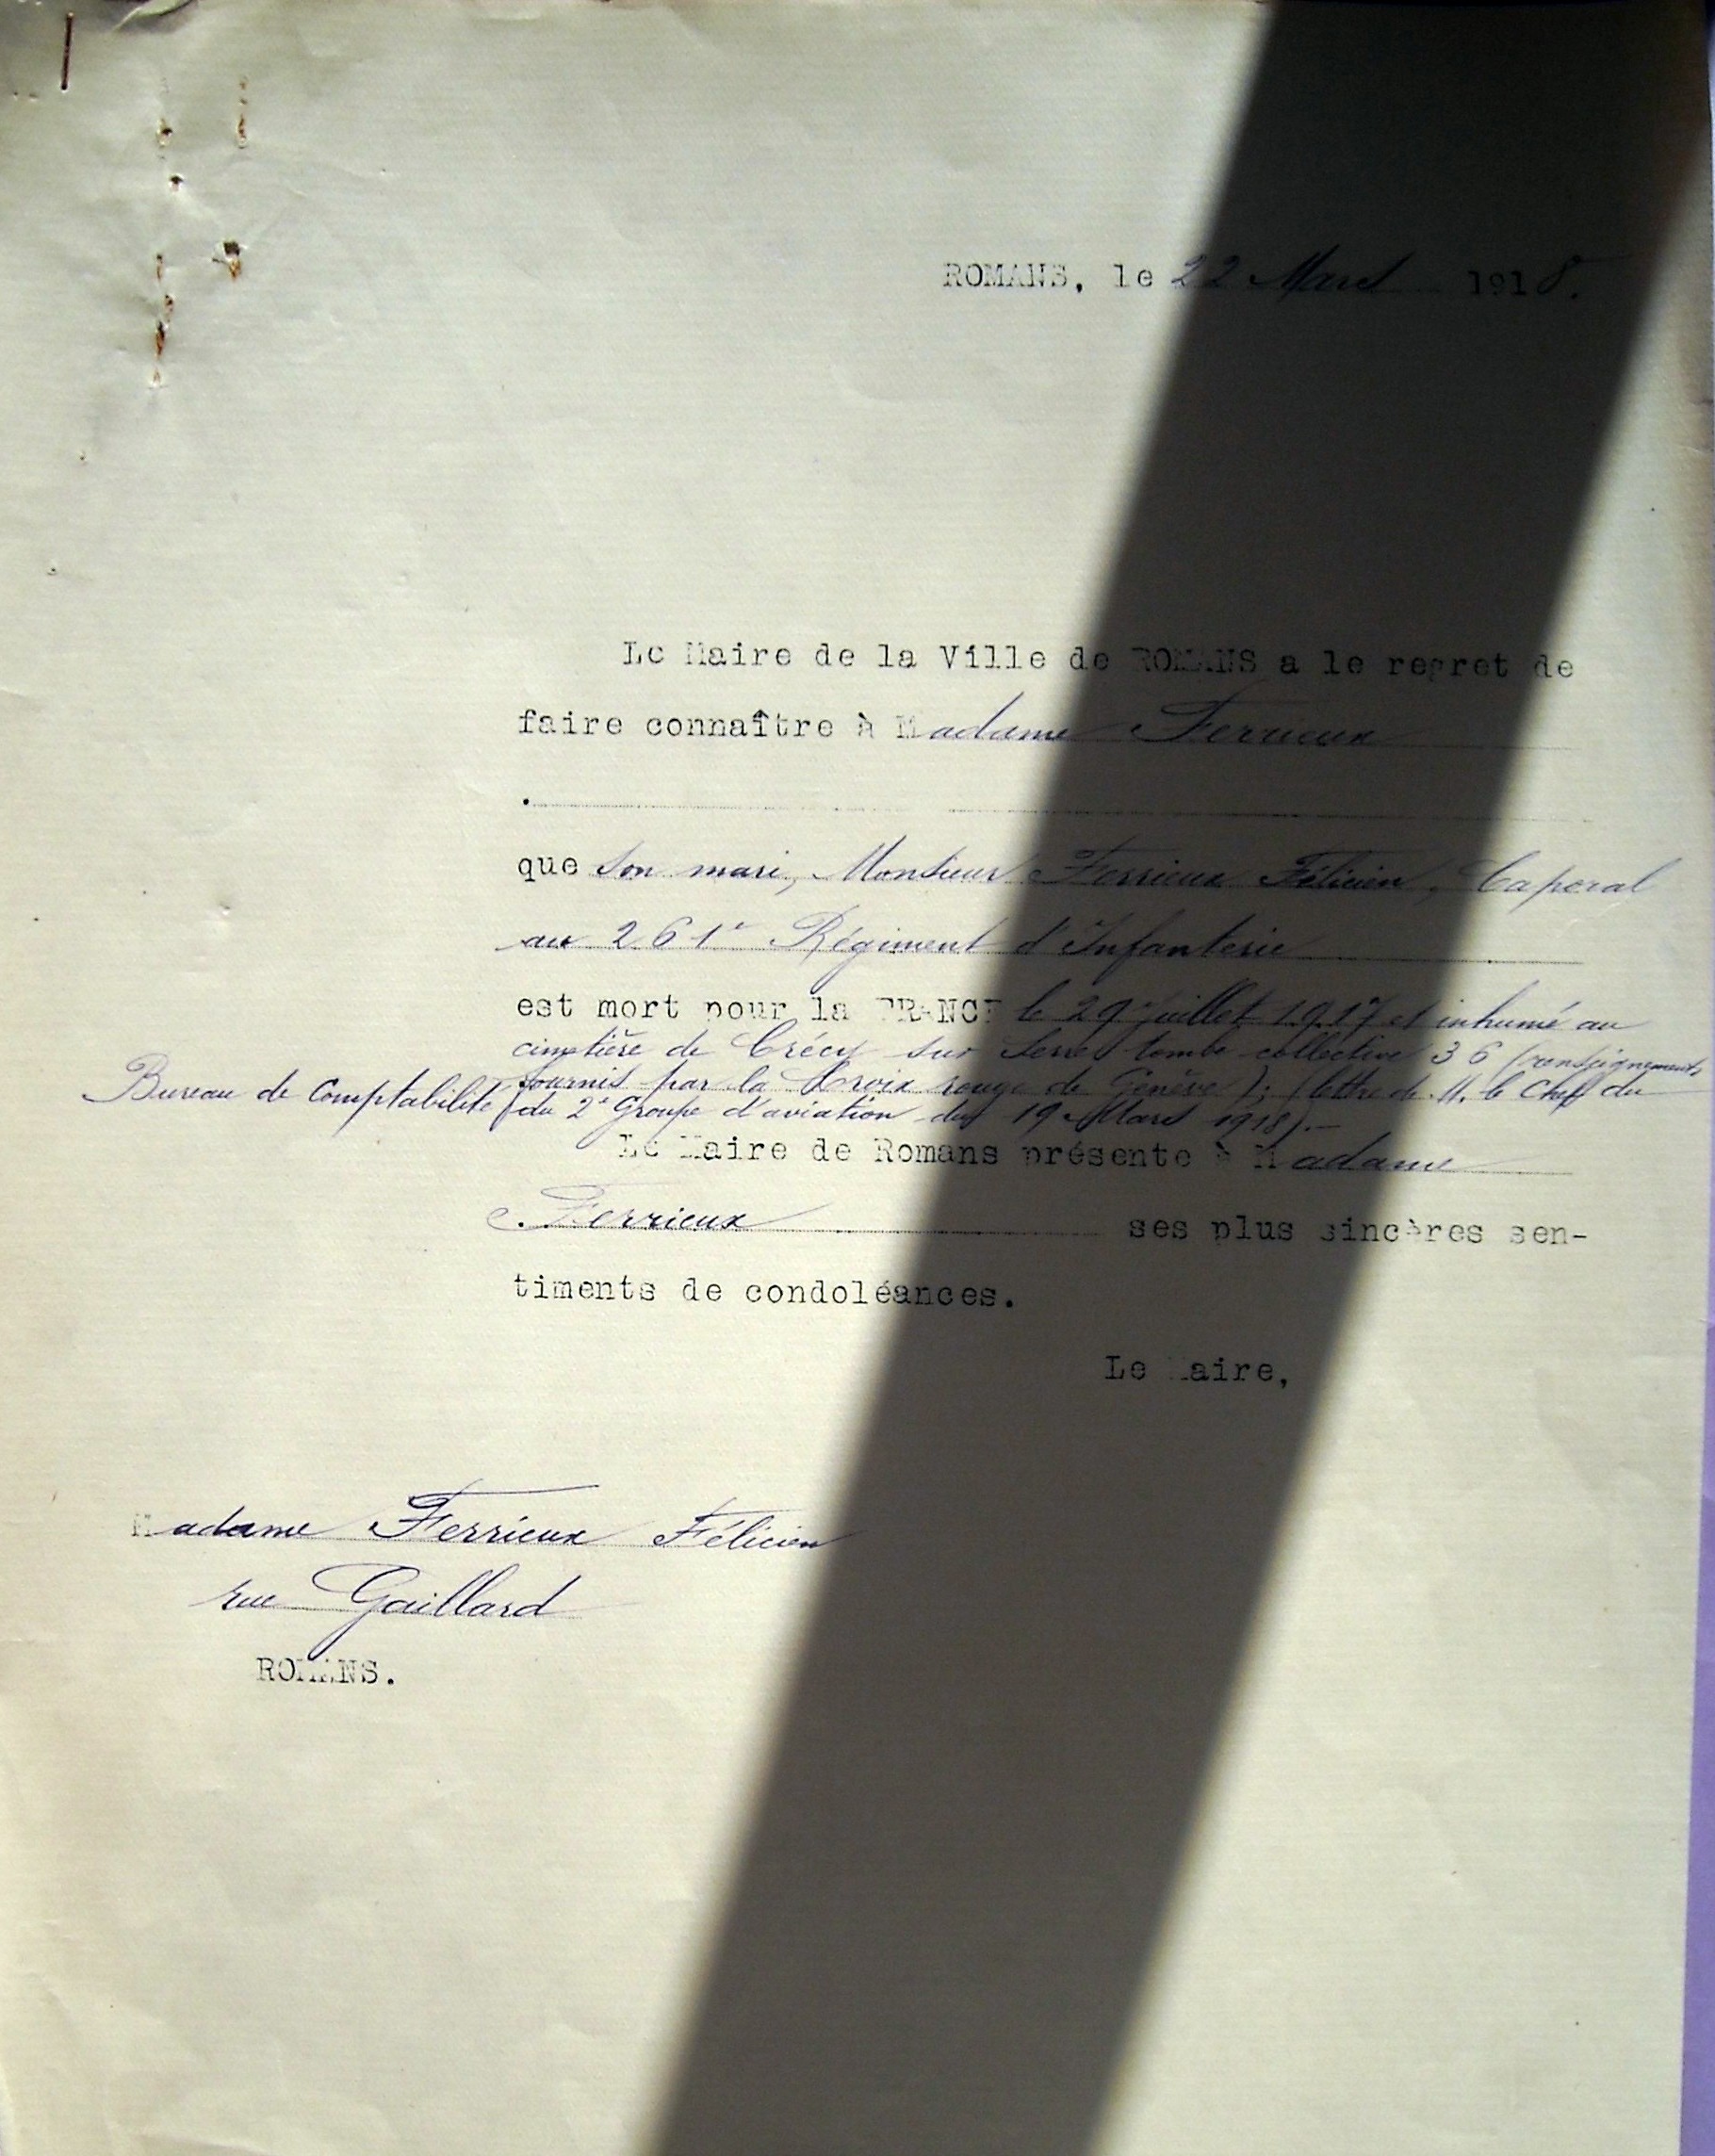 ROMANS, le 22 Mars 1918.
Le Maire de la Ville de ROMANS a le regret de
faire connaître à Madame Ferrieux
.
que son mari, Monsieur Ferrieux Félicien, Caporal
au 261e Régiment d'Infanterie
est mort pour la FRANCE le 29 Juillet 1917 et inhumé au
cimetière de Crécy sur Serre tombe collective 36 (renseignements
fournis par la Croix rouge de Genève); (lettre de M. le Chef du
Bureau de Comptabilité du 2e Groupe d'aviation du 19 Mars 1918).-
Le Maire de Romans présente à Madame
Ferrieux ses plus sincères sen-
timents de condoléances.
Le Maire,
Madame Ferrieux Félicien
rue Gaillard
ROMANS.